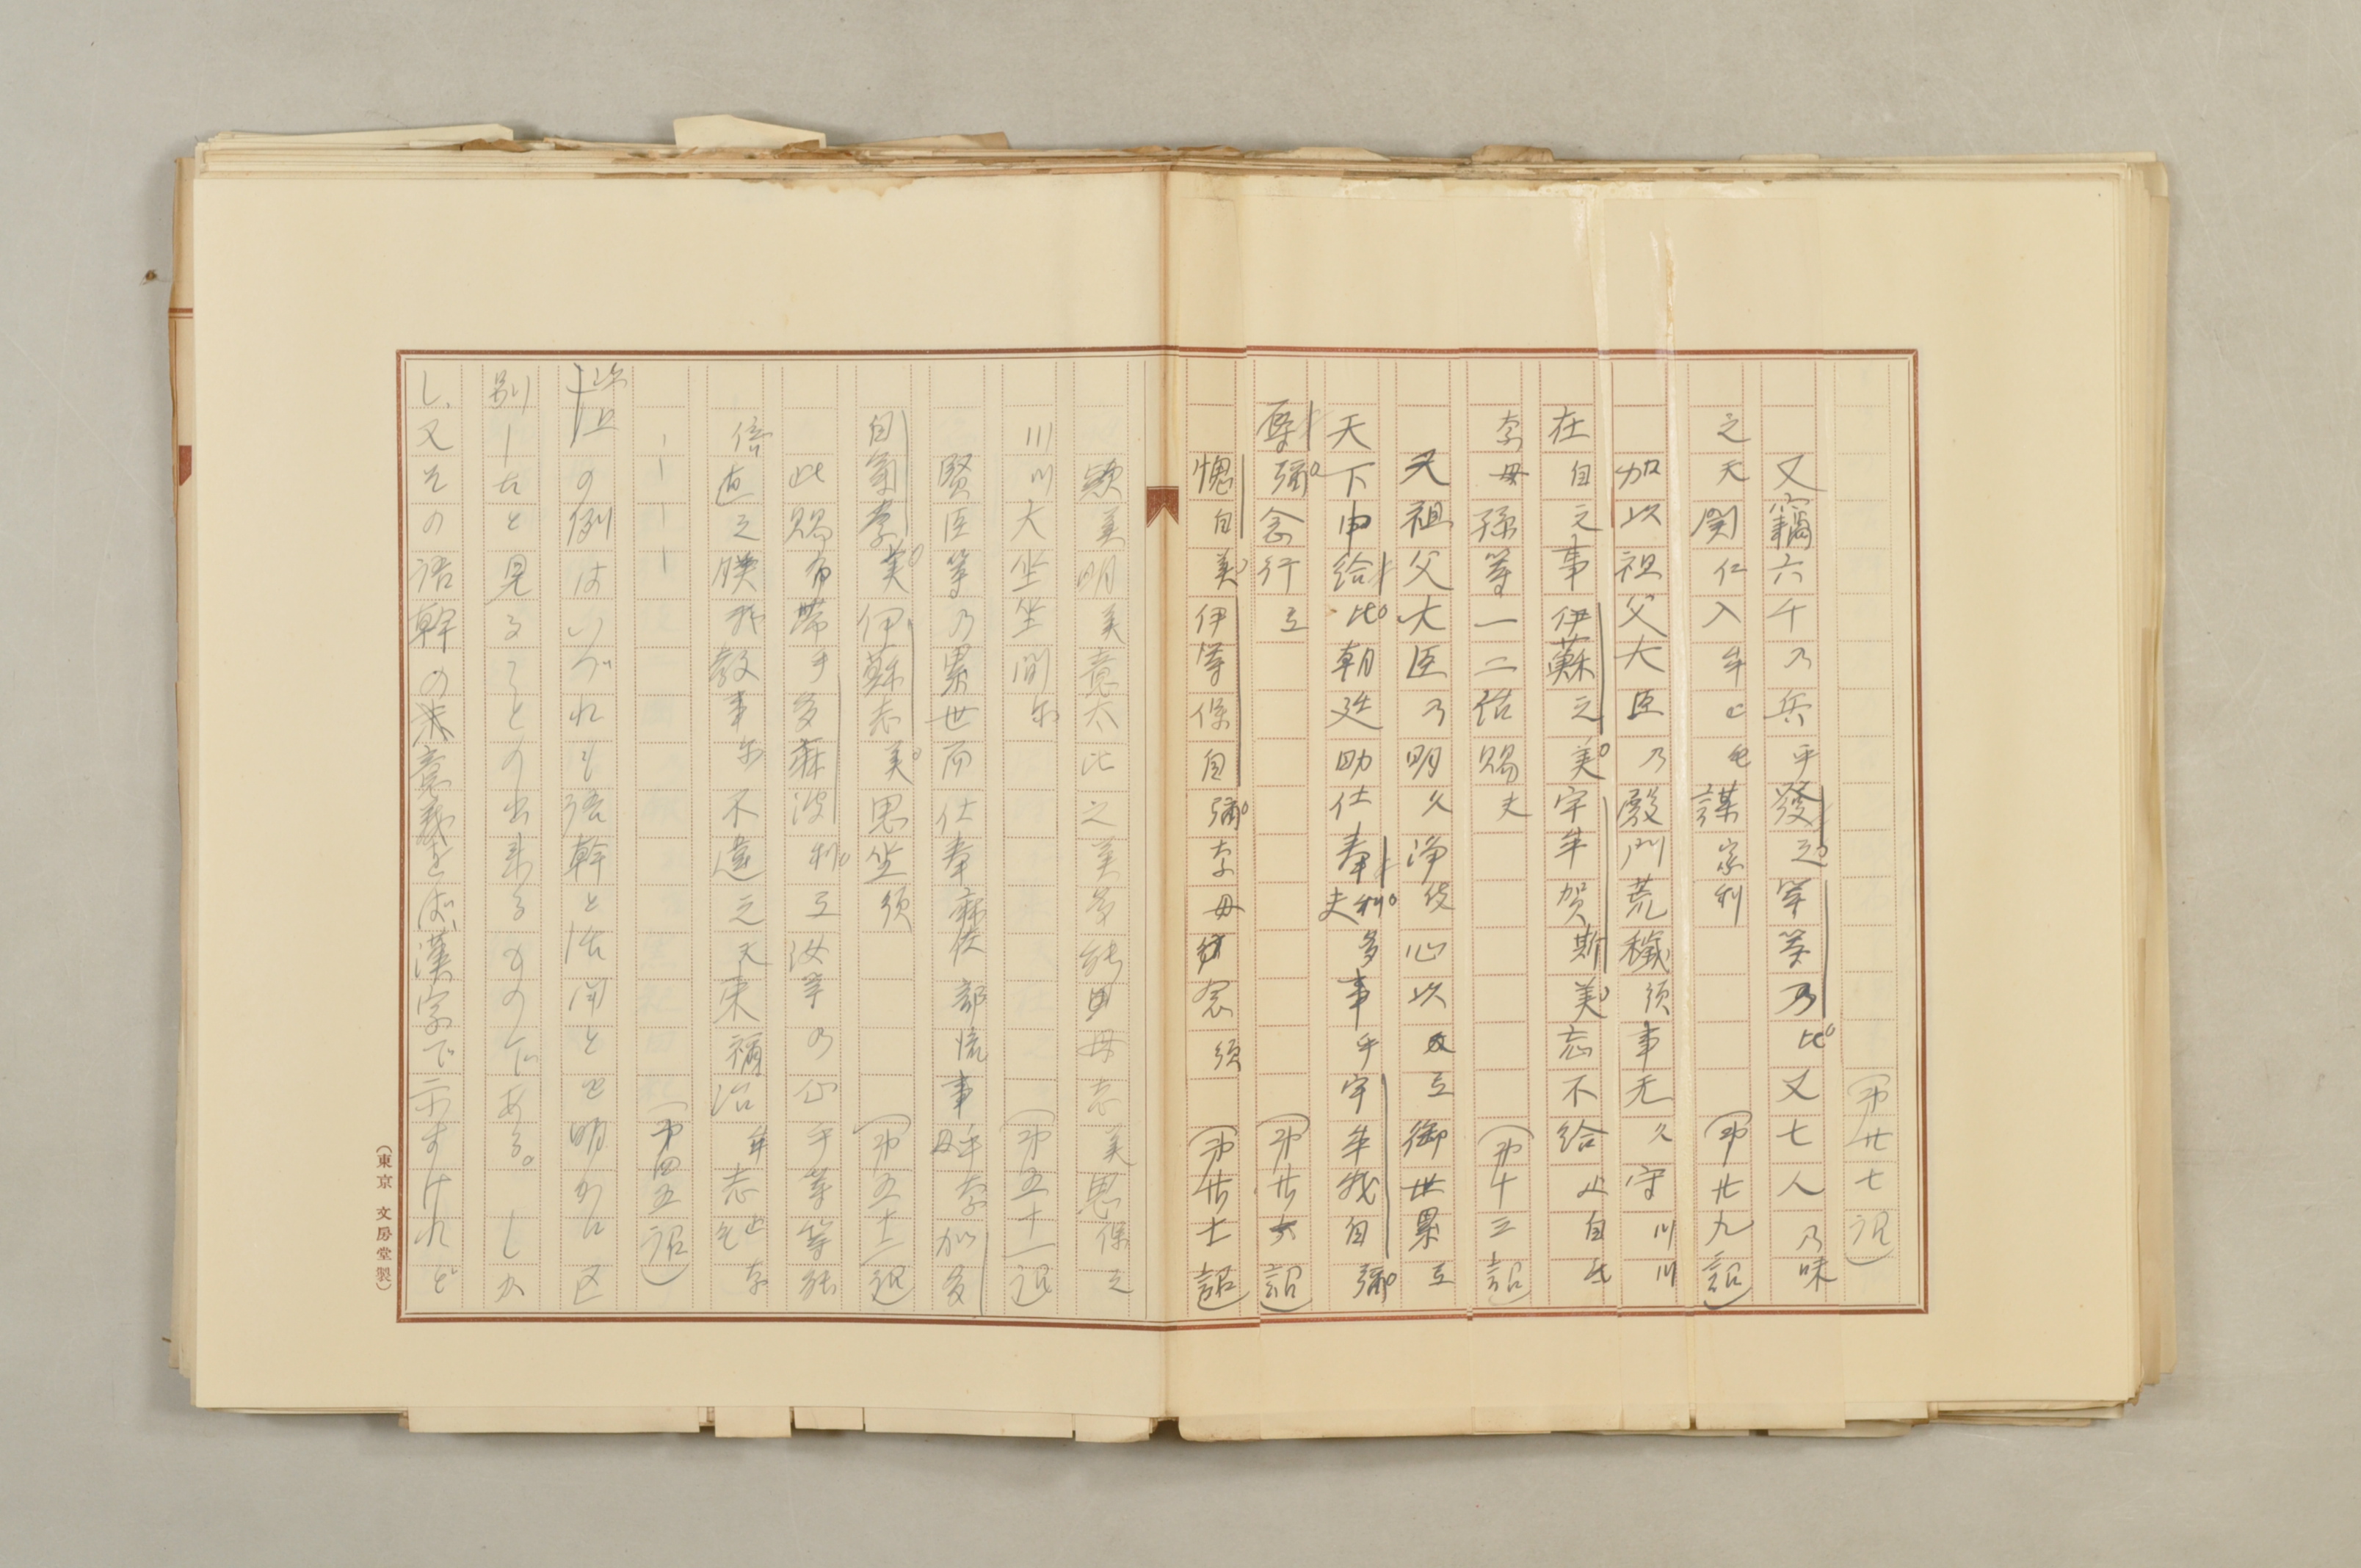 (第廿七詔)
又竊六千乃兵乎發之等等乃比又七人乃味
之天関仁入牟止毛謀家利 (第廿九詔)
加以祖父大臣乃殿門荒穢須事无久守川川
在自之事伊蘇之美宇牟賀斯美忘不給止自氐
奈母孫等一二治賜夫 (第十三詔)
又祖父大臣乃明久浄伎心以弖御世累弖
天下申給比朝廷助仕奉利夫多事乎宇牟我自弥
辱弥念行弖 (第廿六詔)
愧自美伊等保自弥奈母念須 (第廿七詔)
歓美明美意太比之美多能母志美思保之
川川大坐坐間尓 (第五十一詔)
賢臣等乃累世而仕奉麻佐部流事乎奈母加多
自気奈美伊蘇志美思坐須 (第五十二詔)
此賜布帯乎多麻波利弖汝等乃心乎等等能
倍直之朕我教事尓不違之天束祢治牟志止奈
ーーーー (第四五詔)
以上の例はいづれも語幹と活用とを明かに区
別したと見ることの出来るものである。しか
し、又その語幹の意義をば漢字で示すけれど
(東京 文房堂製)